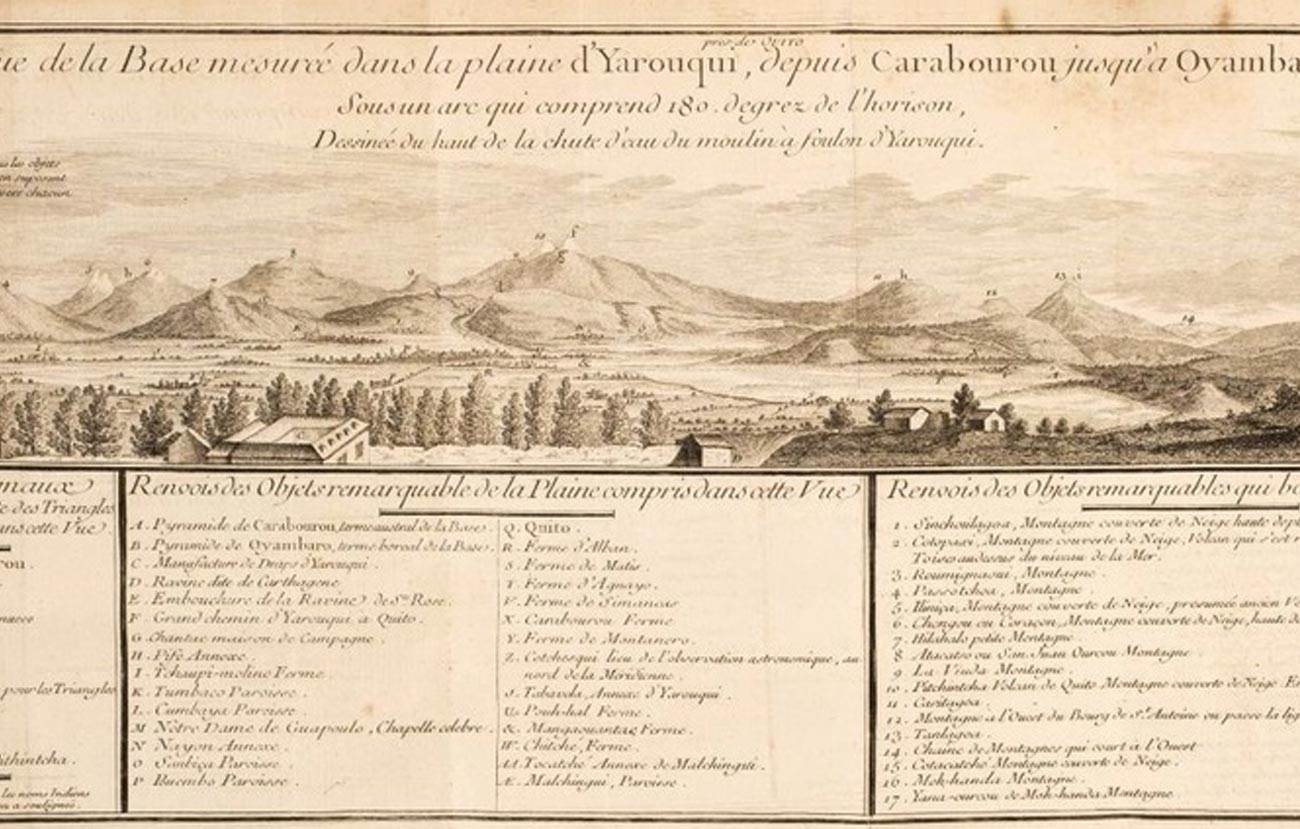 près de QUITO
ue de la Base mesurée dans la plaine d'Yarouqui, depuis Carabourou jusqu'à Oyamba
Sous un arc qui comprend 180. degrez de l'horison,
Dessinée du haut de la chute d'eau du moulin à foulon d'Yarouqui.
les objets
en suposent
chacun
maux
e des Triangles
ans cette Vue
rou.
pour les Triangles
ithintcha.
les noms Indiens
a soulignés.
Renvois des Objets remarquable de la Plaine compris dans cette Vue
A. Pyramide de Carabourou, terme austral de la Base.
B. Pyramide de Oyambaro, terme boreal de la Base.
C. Manufacture de Draps d'Yarouqui.
D. Ravine dite de Carthagene
E. Embouchure de la Ravine de Ste Rose.
F. Grand chemin d'Yarouqui a Quito.
G. Chantac maison de Campagne.
H. Pifo Annexe.
I. Tchaupi-molino Ferme.
K. Tumbaco Paroisse.
L. Cumbaya Paroisse.
M Notre Dame de Guapoulo, Chapelle celebre.
N Nayon Annexe.
O Sinbiça Paroisse.
P Buembo Paroisse.
Q. Quito.
R. Ferme d'Alban.
S. Ferme de Matis.
T. Ferme d'Agnayo.
V. Ferme de Simancas
X. Carabourou Ferme
Y. Ferme de Montanero.
Z. Cotchesqui lieu de l'observation astronomique, au
nord de la Meridienne.
Tababela, Annexe d'Yarouqui.
U. Pouh-hal Ferme.
&. Mangaouantac Ferme.
W. Chitché, Ferme.
AA. Tocatché Annexe de Malchingui.
Æ. Malchingui, Paroisse.
Renvois des Objets remarquables qui bo
1. Sinchoulagoa, Montagne couverte de Neige haute de
2. Cotopaxi, Montagne couverte de Neige, Volcan qui s'est r
Toises audessus du niveau de la Mer.
3. Roumignaoui, Montagne.
4. Passotchoa, Montagne.
5. Ilinica, Montagne couverte de Neige, presumée ancien Vo
6. Chongou ou Coraçon, Montagne couverte de Neige, haute de
7. Hilahalo petite Montagne.
8. Atacatso ou San Juan Ourcou Montagne.
9. La Viuda Montagne.
10. Pitchintcha Volcan de Quito Montagne couverte de Neige
11. Casitagoa.
12. Montagne a l'Ouest du Bourg de St. Antoine ou passe la lig
13. Tanlagoa.
14. Chaine de Montagnes qui court à l'Ouest
15. Cotacatché Montagne couverte de Neige.
16. Moh-handa Montagne.
17. Yana-ourcou de Moh-handa Montagne.